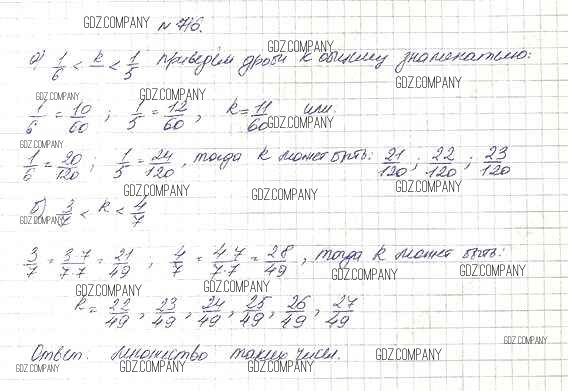 GDZ.COMPANY № 716.
GDZ.COMPANY
а) 1/6 < k < 1/5 приведём дроби к общему знаменателю:
GDZ.COMPANY
GDZ.COMPANY GDZ.COMPANY
1/6 = 10/60 ; 1/5 = 12/60 , k = 11/60 или
GDZ.COMPANY
GDZ.COMPANY
1/6 = 20/120 ; 1/5 = 24/120 , тогда k может быть: 21/120 ; 22/120 ; 23/120
GDZ.COMPANY GDZ.COMPANY GDZ.COMPANY
б) 3/7 < k < 4/7
GDZ.COMPANY
3/7 = 3·7/7·7 = 21/49 ; 4/7 = 4·7/7·7 = 28/49 , тогда k может быть:
GDZ.COMPANY GDZ.COMPANY
GDZ.COMPANY GDZ.COMPANY
k = 22/49 , 23/49 , 24/49 , 25/49 , 26/49 , 27/49
GDZ.COMPANY
Ответ. множество таких чисел. GDZ.COMPANY
GDZ.COMPANY GDZ.COMPANY GDZ.COMPANY